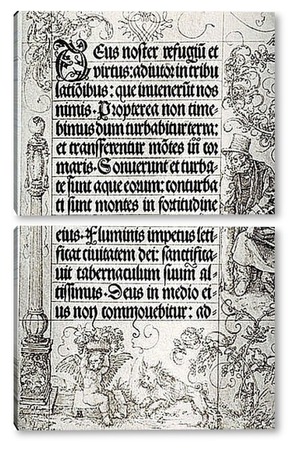 Deus noster refugiũ et
virtus: adiutor in tribu
latiõibus: que inuenerũt nos
nimis. Propterea non time
bimus dum turbabitur terra:
et transferentur mõtes in cor
maris. Sonuerunt et turba-
te sunt aque eorum: conturba
ti sunt montes in fortitudine
eius. Fluminis impetus leti
ficat ciuitatem dei: sanctifica-
uit tabernaculum suum al-
tissimus. Deus in medio ei
us non commouebitur: ad-